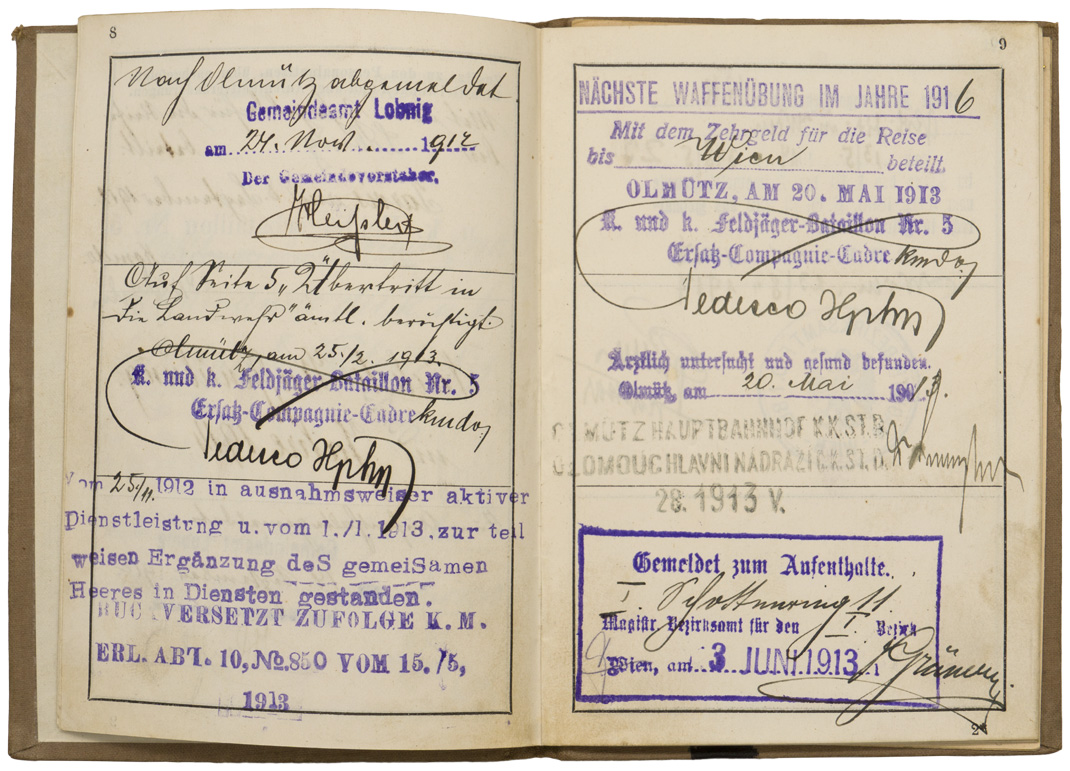 8
Nach Olmütz abgemeldet
Gemeindeamt Lobnig
am 24. Nov. 1912
Der Gemeindevorsteher.
Auf Seite 5 „Übertritt in
die Landwehr" ämtl. berichtigt.
Olmütz, am 25./2. 1913.
K. und k. Feldjäger-Bataillon Nr. 5
Ersatz-Compagnie-Cadrekmdo
Tedesco Hptm
Vom 25/11. 1912 in ausnahmsweiser aktiver
Dienstleistung u. vom 1./1. 1913. zur teil
weisen Ergänzung deS gemeiSamen
Heeres in Diensten gestanden.
RÜCKVERSETZT ZUFOLGE K. M.
ERL. ABT. 10, No. 850 VOM 15./5,
1913
9
NÄCHSTE WAFFENÜBUNG IM JAHRE 1916
Mit dem Zehrgeld für die Reise
bis Wien beteilt.
OLMÜTZ, AM 20. MAI 1913
K. und k. Feldjäger-Bataillon Nr. 5
Ersatz-Compagnie-Cadre kmdo
Tedesco Hptm
Ärztlich untersucht und gesund befunden.
Olmütz, am 20. Mai 1913.
OLMÜTZ HAUPTBAHNHOF K.K.ST.B.
OLOMOUC HLAVNI NÁDRAŽÍ C.K.ST.D.
28. 1913 V.
Gemeldet zum Aufenthalte.
I. Schottenring 11
Magistr. Bezirksamt für den I. Bezirk
Wien, am 3 JUNI 1913
2*